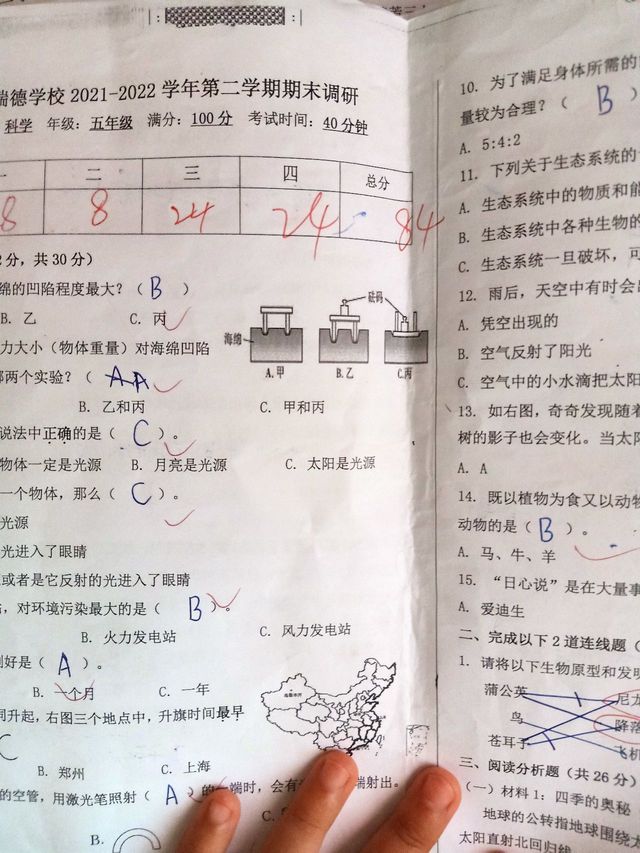 瑞德学校 2021-2022 学年第二学期期末调研
科学 年级：五年级 满分：100 分 考试时间：40 分钟
一 二 三 四 总分
8 8 24 24 84
2 分，共 30 分）
绵的凹陷程度最大？（ B ）
B. 乙 C. 丙
砝码
海绵
A.甲 B.乙 C.丙
力大小（物体重量）对海绵凹陷
那两个实验？（ A ）
B. 乙和丙 C. 甲和丙
说法中正确的是（ C ）。
物体一定是光源 B. 月亮是光源 C. 太阳是光源
一个物体，那么（ C ）。
光源
光进入了眼睛
或者是它反射的光进入了眼睛
，对环境污染最大的是（ B ）。
B. 火力发电站 C. 风力发电站
好是（ A ）。
B. 一个月 C. 一年
同升起，右图三个地点中，升旗时间最早
C
B. 郑州 C. 上海
的空管，用激光笔照射（ A ）的一端时，会有 端射出。
B. C.
10. 为了满足身体所需的
量较为合理？（ B ）
A. 5:4:2
11. 下列关于生态系统的
A. 生态系统中的物质和能
B. 生态系统中各种生物的
C. 生态系统一旦破坏，可
12. 雨后，天空中有时会出
A. 凭空出现的
B. 空气反射了阳光
C. 空气中的小水滴把太阳
13. 如右图，奇奇发现随着
树的影子也会变化。当太阳
A. A
14. 既以植物为食又以动物
动物的是（ B ）。
A. 马、牛、羊
15. “日心说”是在大量事
A. 爱迪生
二、完成以下 2 道连线题（
1. 请将以下生物原型和发明
蒲公英 尼龙
鸟 降落
苍耳子 飞机
三、阅读分析题（共 26 分）
（一）材料 1：四季的奥秘
地球的公转指地球围绕太
太阳直射北回归线